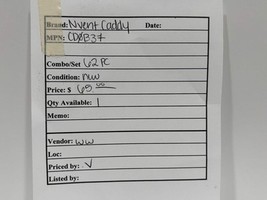 Brand: Nvent Caddy Date:
MPN: CD0B37
Combo/Set 62 PC
Condition: nw
Price: $ 65.00
Qty Available: 1
Memo:
Vendor: WW
Loc:
Priced by: V
Listed by: